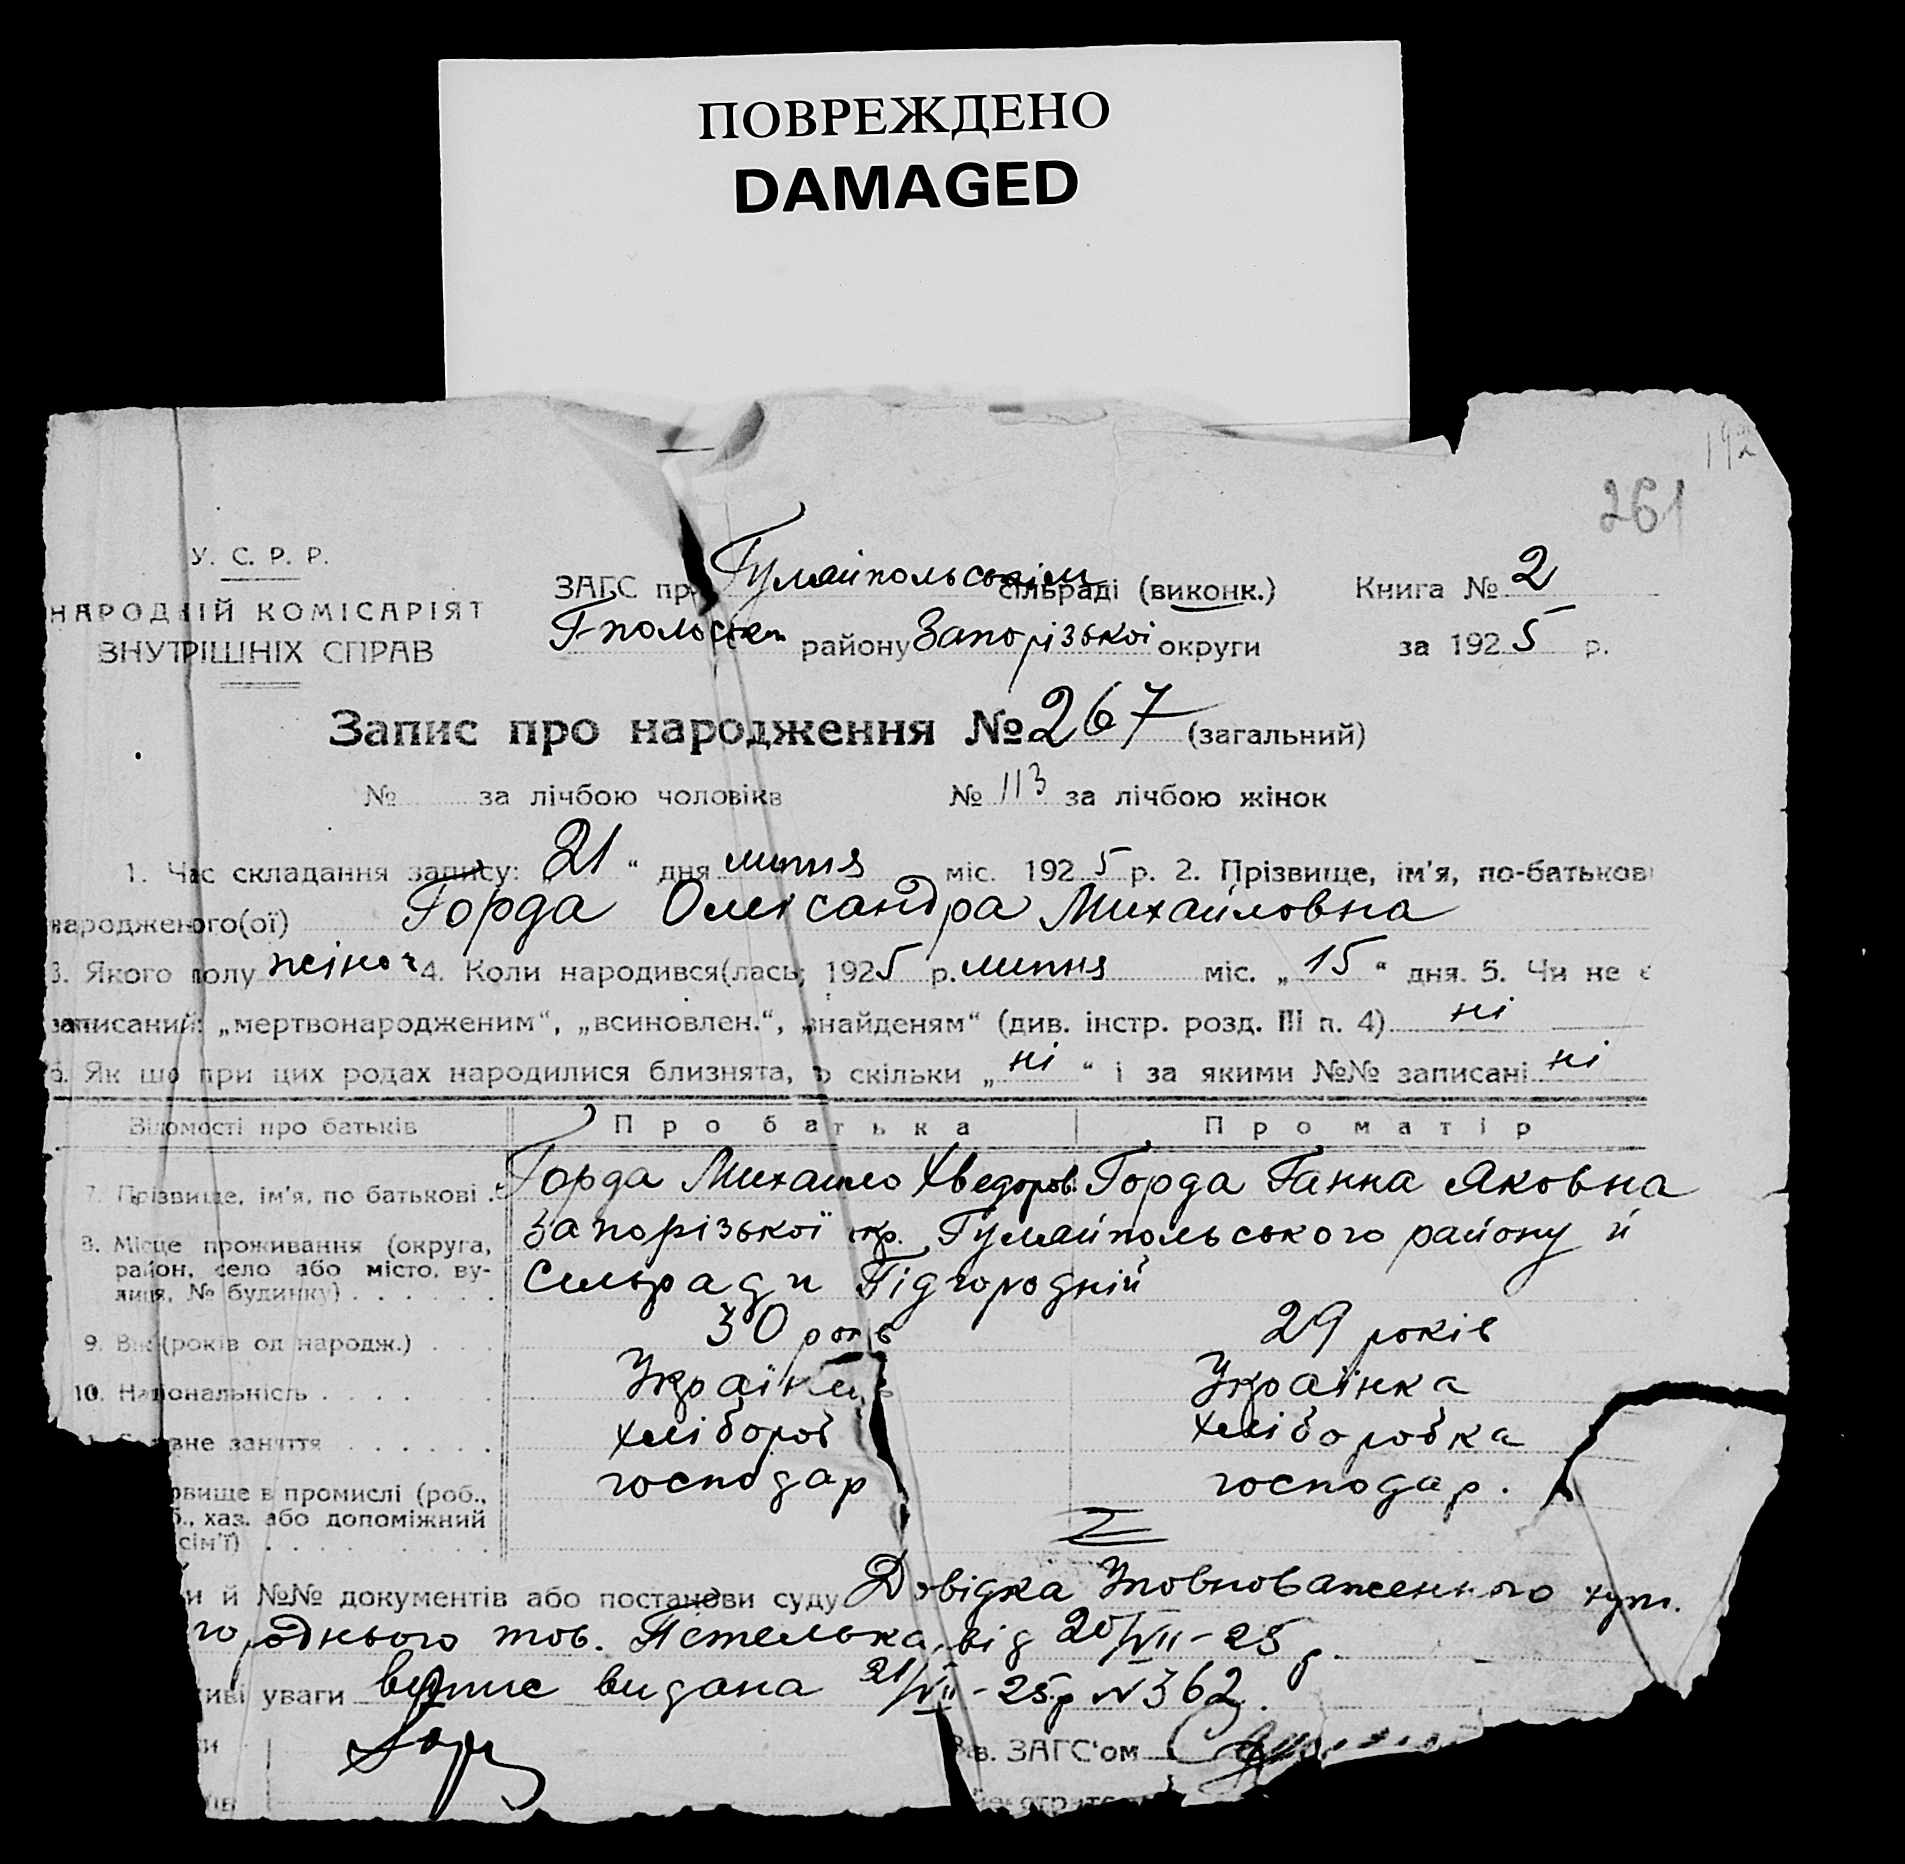 ПОВРЕЖДЕНО
DAMAGED
192
261
У. С. Р. Р.
НАРОДНІЙ КОМІСАРІЯТ
ВНУТРІШНІХ СПРАВ
ЗАГС при Гуляйпольськім сільраді (виконк.) Книга № 2
Г-польськ району Запорізької округи за 1925 р.
Запис про народження № 267 (загальний)
№ за лічбою чоловіків № 113 за лічбою жінок
1. Час складання запису: „21“ дня липня міс. 1925 р. 2. Прізвище, ім'я, по-батькові
народженого(ої) Горда Олександра Михайловна
3. Якого полу жіноч 4. Коли народився(лась) 1925 р. липня міс. „15“ дня. 5. Чи не є
записаний: „мертвонародженим“, „всиновлен.“, „знайденям“ (див. інстр. розд. III п. 4) ні
6. Як що при цих родах народилися близнята, то скільки „ні“ і за якими №№ записані ні
Відомості про батьків Про батька Про матір
7. Прізвище, ім'я, по батькові Горда Михайло Хведоров. Горда Ганна Яковна
8. Місце проживання (округа, район, село або місто, вулиця, № будинку) Запорізької окр. Гуляйпольського району й
Сельради Підгородній
9. Вік (років од народж.) 30 років 29 років
10. Національність Українець Українка
вне заняття хлібороб хліборобка
овище в промислі (роб., хаз. або допоміжний сім'ї) господар господар.
и й №№ документів або постанови суду Довідка Уповноваженного хут.
городнього тов. від 20/VII-25 р.
ливі уваги випис видана 21/VII-25р № 362.
Зав. ЗАГС'ом